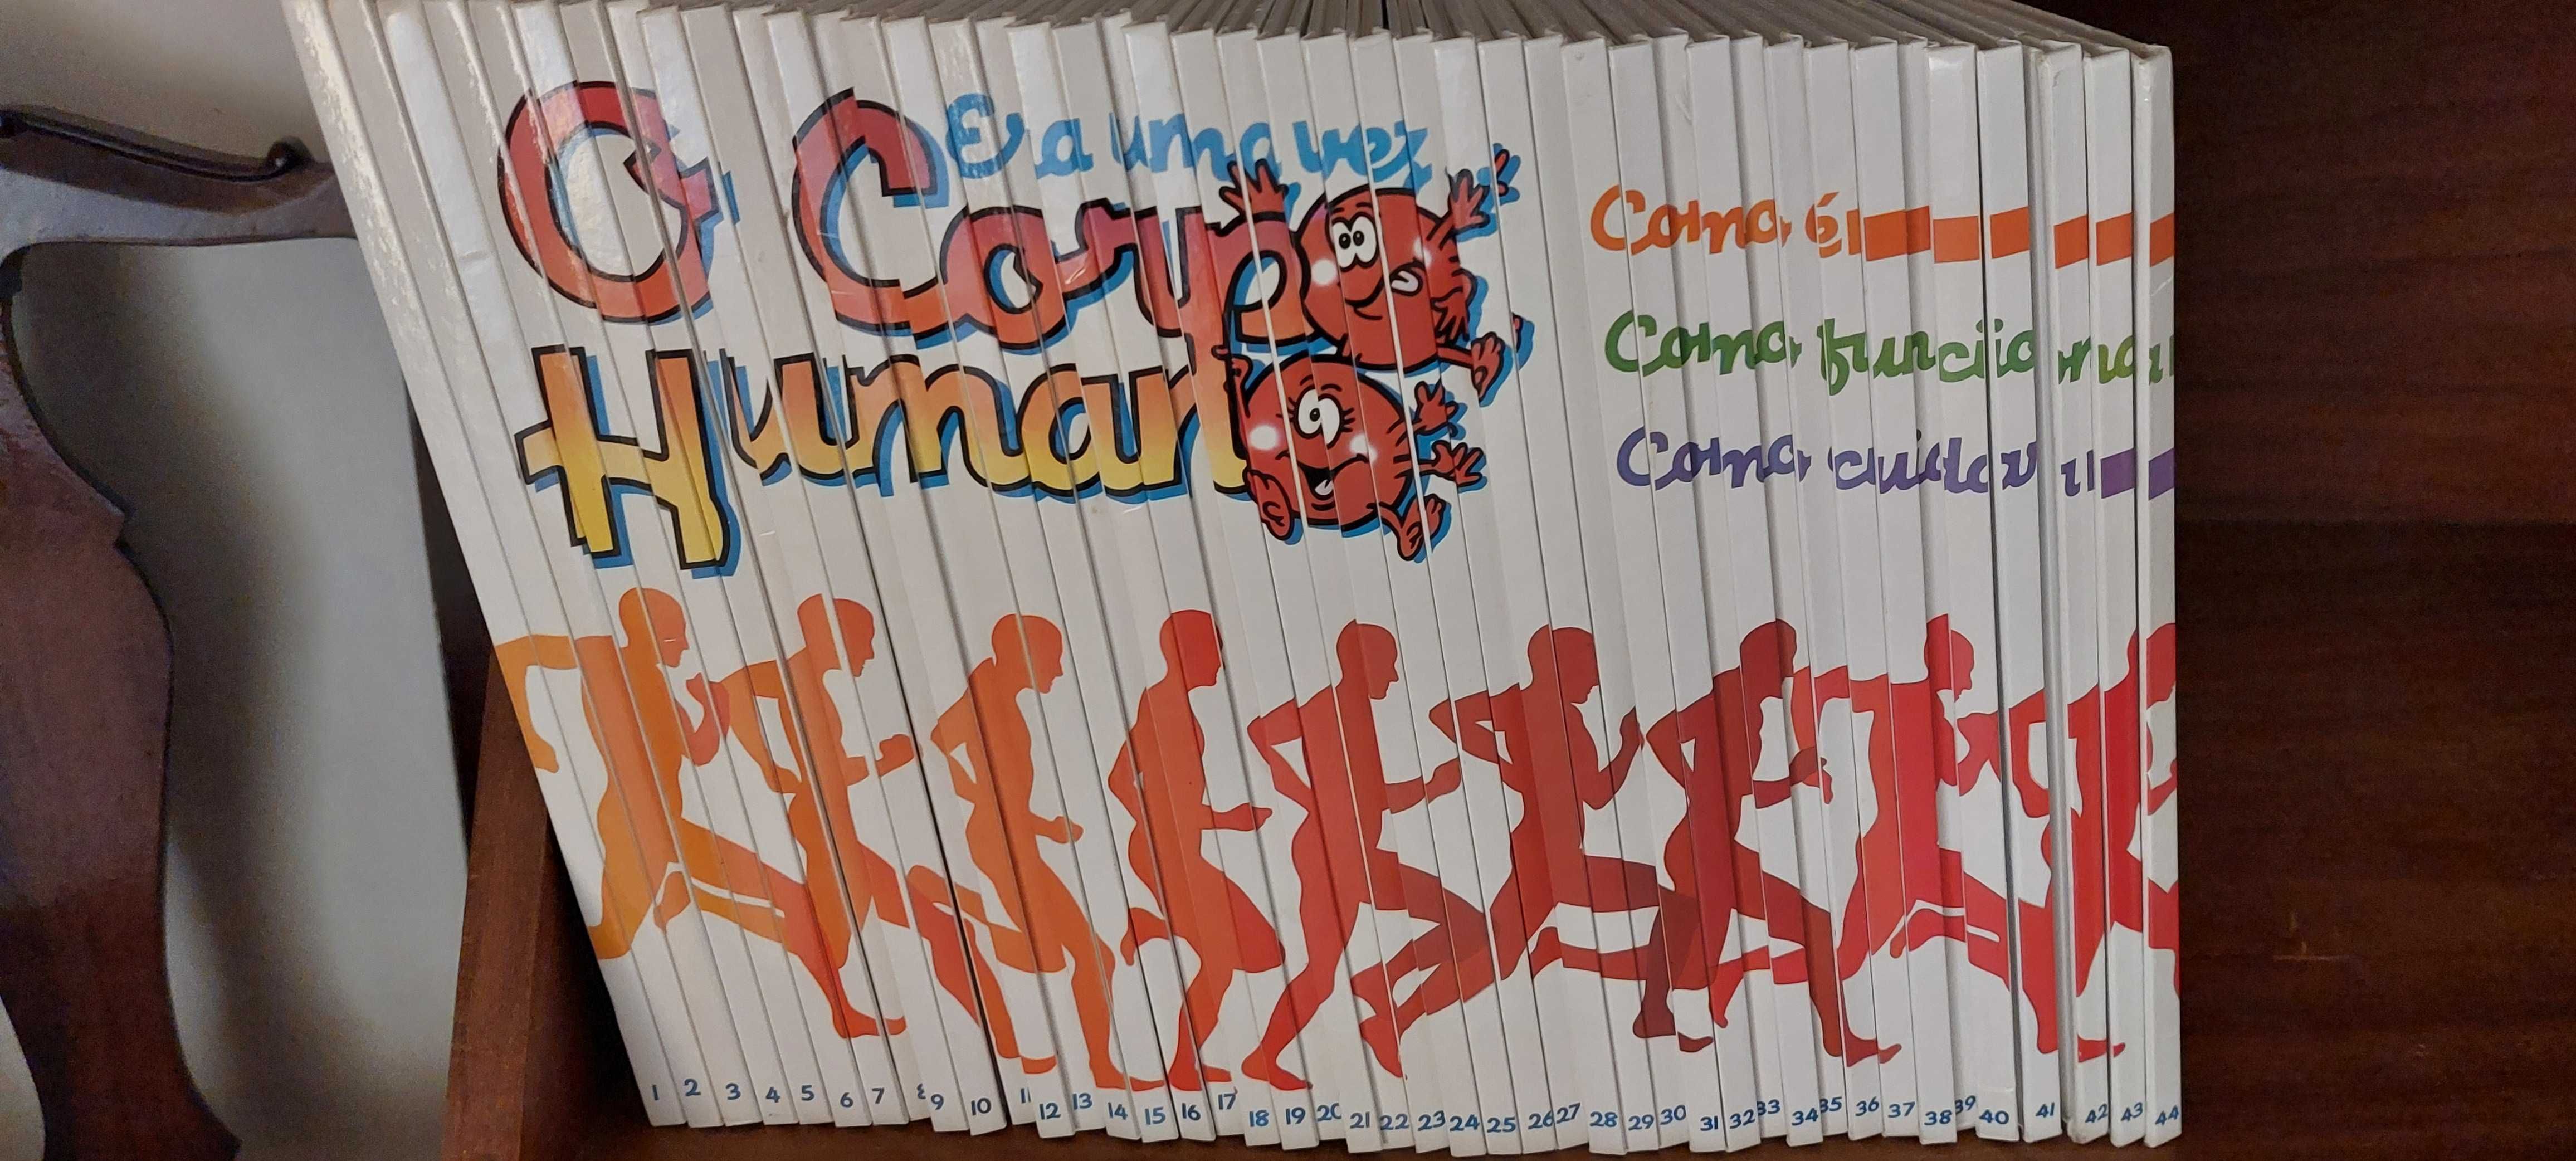 Era uma vez
O Corpo
Humano
Como é
Como funciona
Como cuidar
1 2 3 4 5 6 7 8 9 10 11 12 13 14 15 16 17 18 19 20 21 22 23 24 25 26 27 28 29 30 31 32 33 34 35 36 37 38 39 40 41 42 43 44